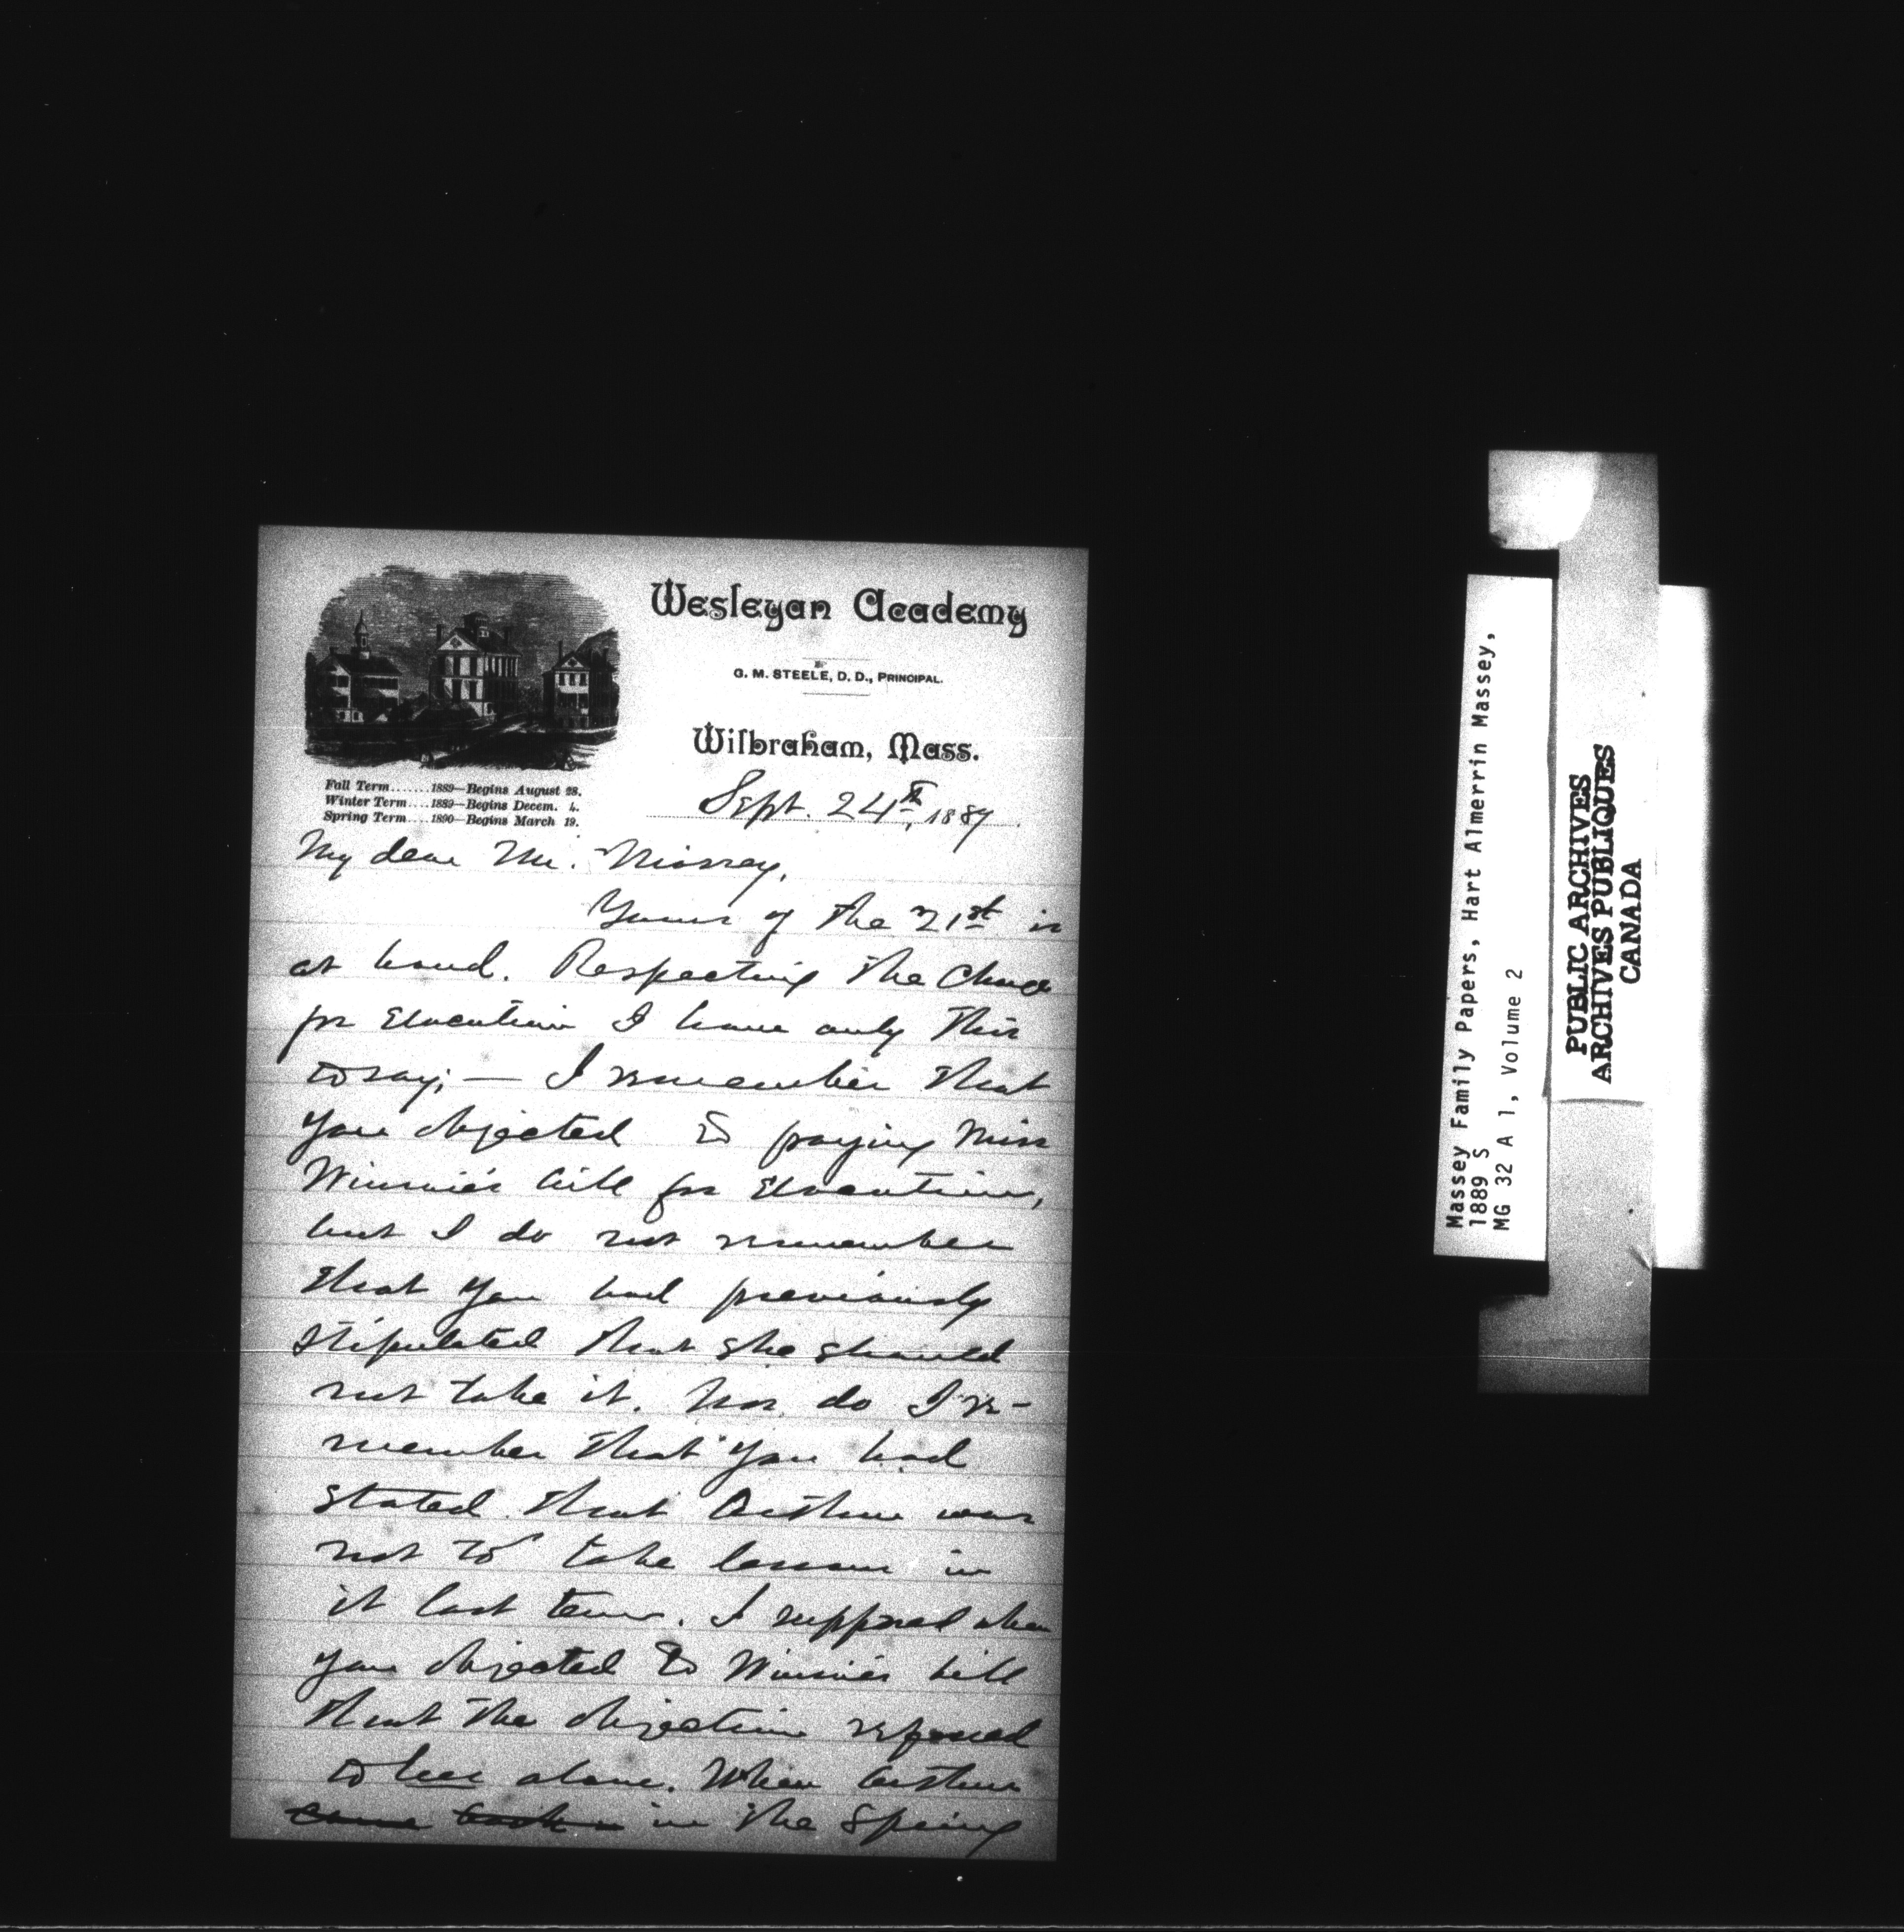 Wesleyan Academy
G. M. STEELE, D. D., PRINCIPAL.
Wilbraham, Mass.
Fall Term.......1889—Begins August 28.
Winter Term....1889—Begins Decem. 4.
Spring Term....1890—Begins March 19.
Sept. 24th, 1889
My dear Mr. Massey,
Yours of the 21st is
at hand. Respecting the charge
for Elocution I have only this
to say; — I remember that
you objected to paying Miss
Winnie's bill for Elocution,
but I do not remember
that you had previously
stipulated that she should
not take it. Nor do I re-
member that you had
stated that Arthur was
not to take lessons in
it last term. I supposed when
you objected to Winnie's bill
that the objection referred
to her alone. When Arthur
came back in the Spring
Massey Family Papers, Hart Almerrin Massey,
1889 S
MG 32 A 1, Volume 2
PUBLIC ARCHIVES
ARCHIVES PUBLIQUES
CANADA